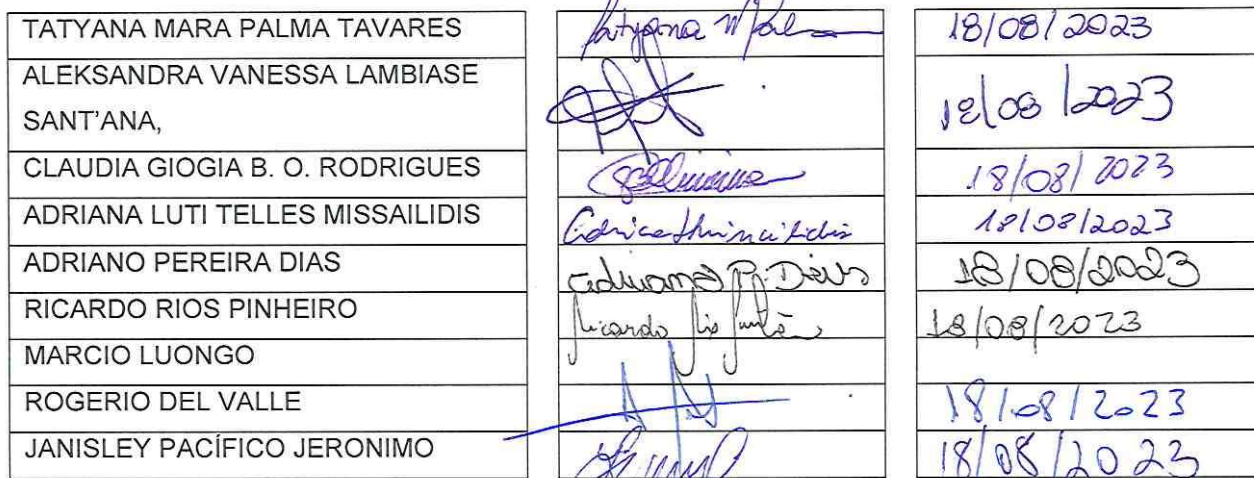 TATYANA MARA PALMA TAVARES Tatyana M Pal 18/08/2023
ALEKSANDRA VANESSA LAMBIASE
SANT'ANA, 18/08/2023
CLAUDIA GIOGIA B. O. RODRIGUES 18/08/2023
ADRIANA LUTI TELLES MISSAILIDIS 18/08/2023
ADRIANO PEREIRA DIAS Adriano P. Dias 18/08/2023
RICARDO RIOS PINHEIRO Ricardo 18/08/2023
MARCIO LUONGO
ROGERIO DEL VALLE 18/08/2023
JANISLEY PACÍFICO JERONIMO 18/08/2023